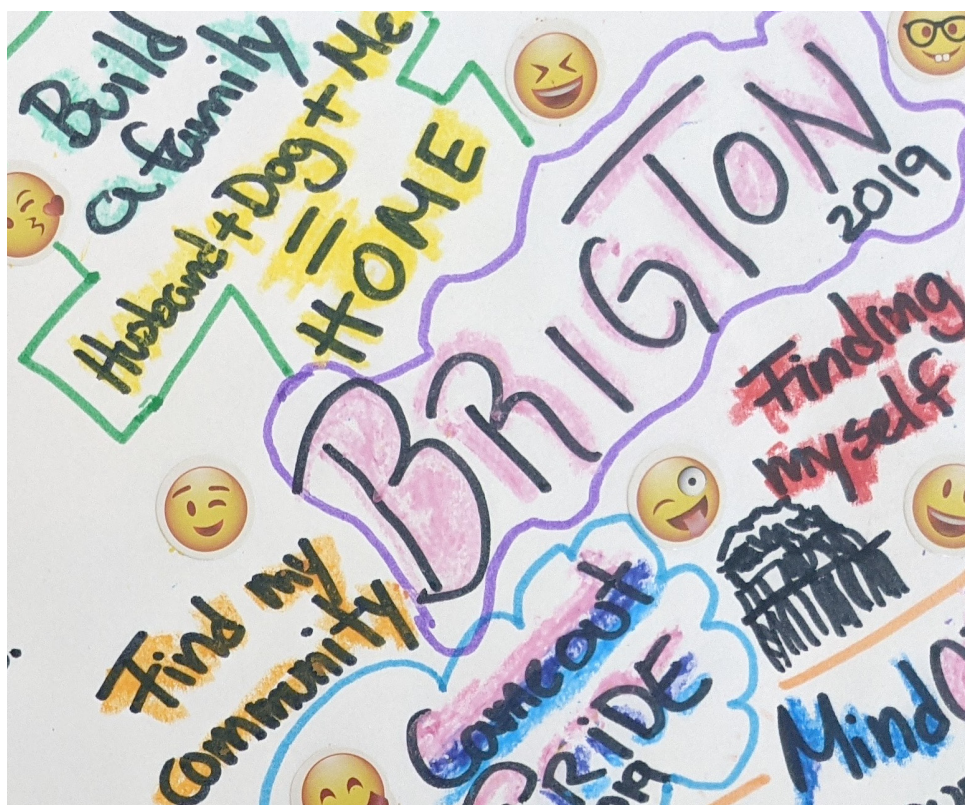 Build
a family
Husband + Dog + Me
=
HOME
BRIGTON
2019
Finding
myself
Find my
community
Come out
PRIDE
Mind